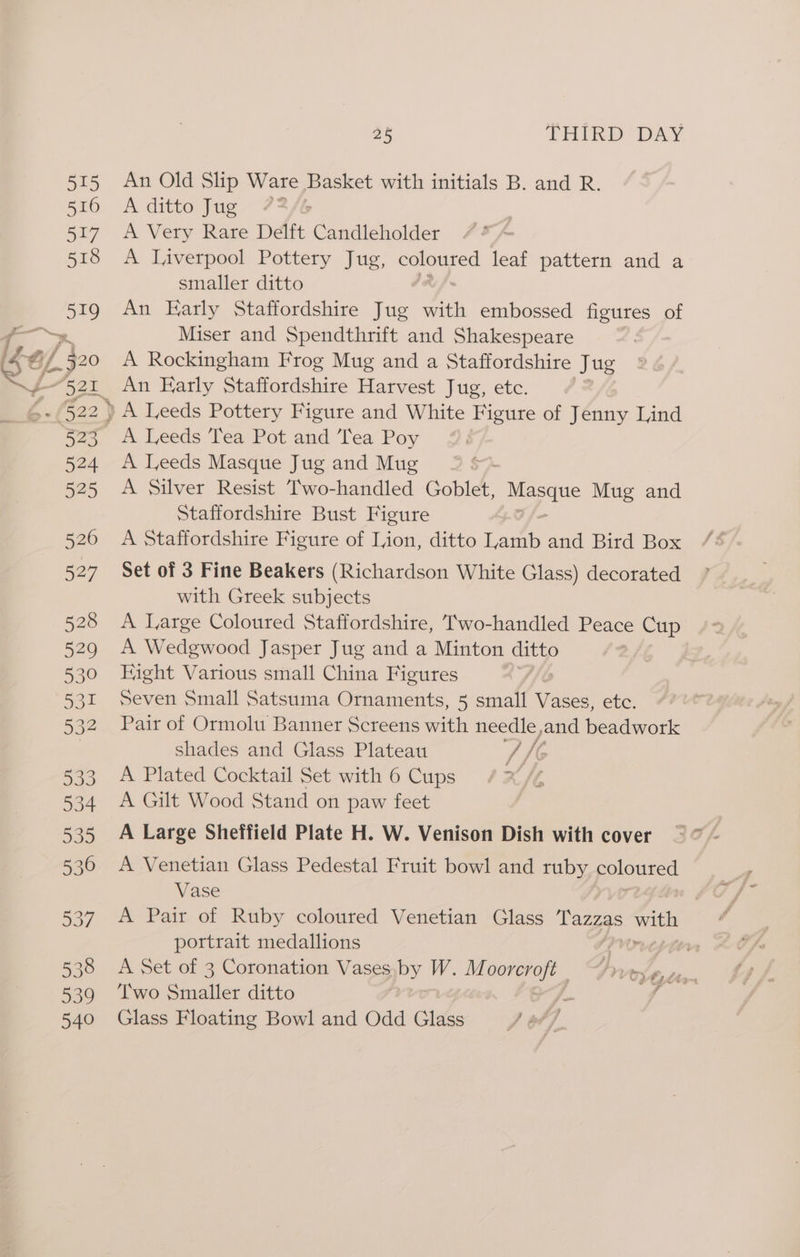 25 THIRD DAY
515 An Old Slip Ware Basket with initials B. and R.
516 A ditto Jug
517 A Very Rare Delft Candleholder
518 A Liverpool Pottery Jug, coloured leaf pattern and a
smaller ditto
519 An Early Staffordshire Jug with embossed figures of
Miser and Spendthrift and Shakespeare
520 A Rockingham Frog Mug and a Staffordshire Jug
521 An Early Staffordshire Harvest Jug, etc.
522 A Leeds Pottery Figure and White Figure of Jenny Lind
523 A Leeds Tea Pot and Tea Poy
524 A Leeds Masque Jug and Mug
525 A Silver Resist Two-handled Goblet, Masque Mug and
Staffordshire Bust Figure
526 A Staffordshire Figure of Lion, ditto Lamb and Bird Box
527 Set of 3 Fine Beakers (Richardson White Glass) decorated
with Greek subjects
528 A Large Coloured Staffordshire, Two-handled Peace Cup
529 A Wedgwood Jasper Jug and a Minton ditto
530 Eight Various small China Figures
531 Seven Small Satsuma Ornaments, 5 small Vases, etc.
532 Pair of Ormolu Banner Screens with needle and beadwork
shades and Glass Plateau
533 A Plated Cocktail Set with 6 Cups
534 A Gilt Wood Stand on paw feet
535 A Large Sheffield Plate H. W. Venison Dish with cover
536 A Venetian Glass Pedestal Fruit bowl and ruby coloured
Vase
537 A Pair of Ruby coloured Venetian Glass Tazzas with
portrait medallions
538 A Set of 3 Coronation Vases by W. Moorcroft
539 Two Smaller ditto
540 Glass Floating Bowl and Odd Glass